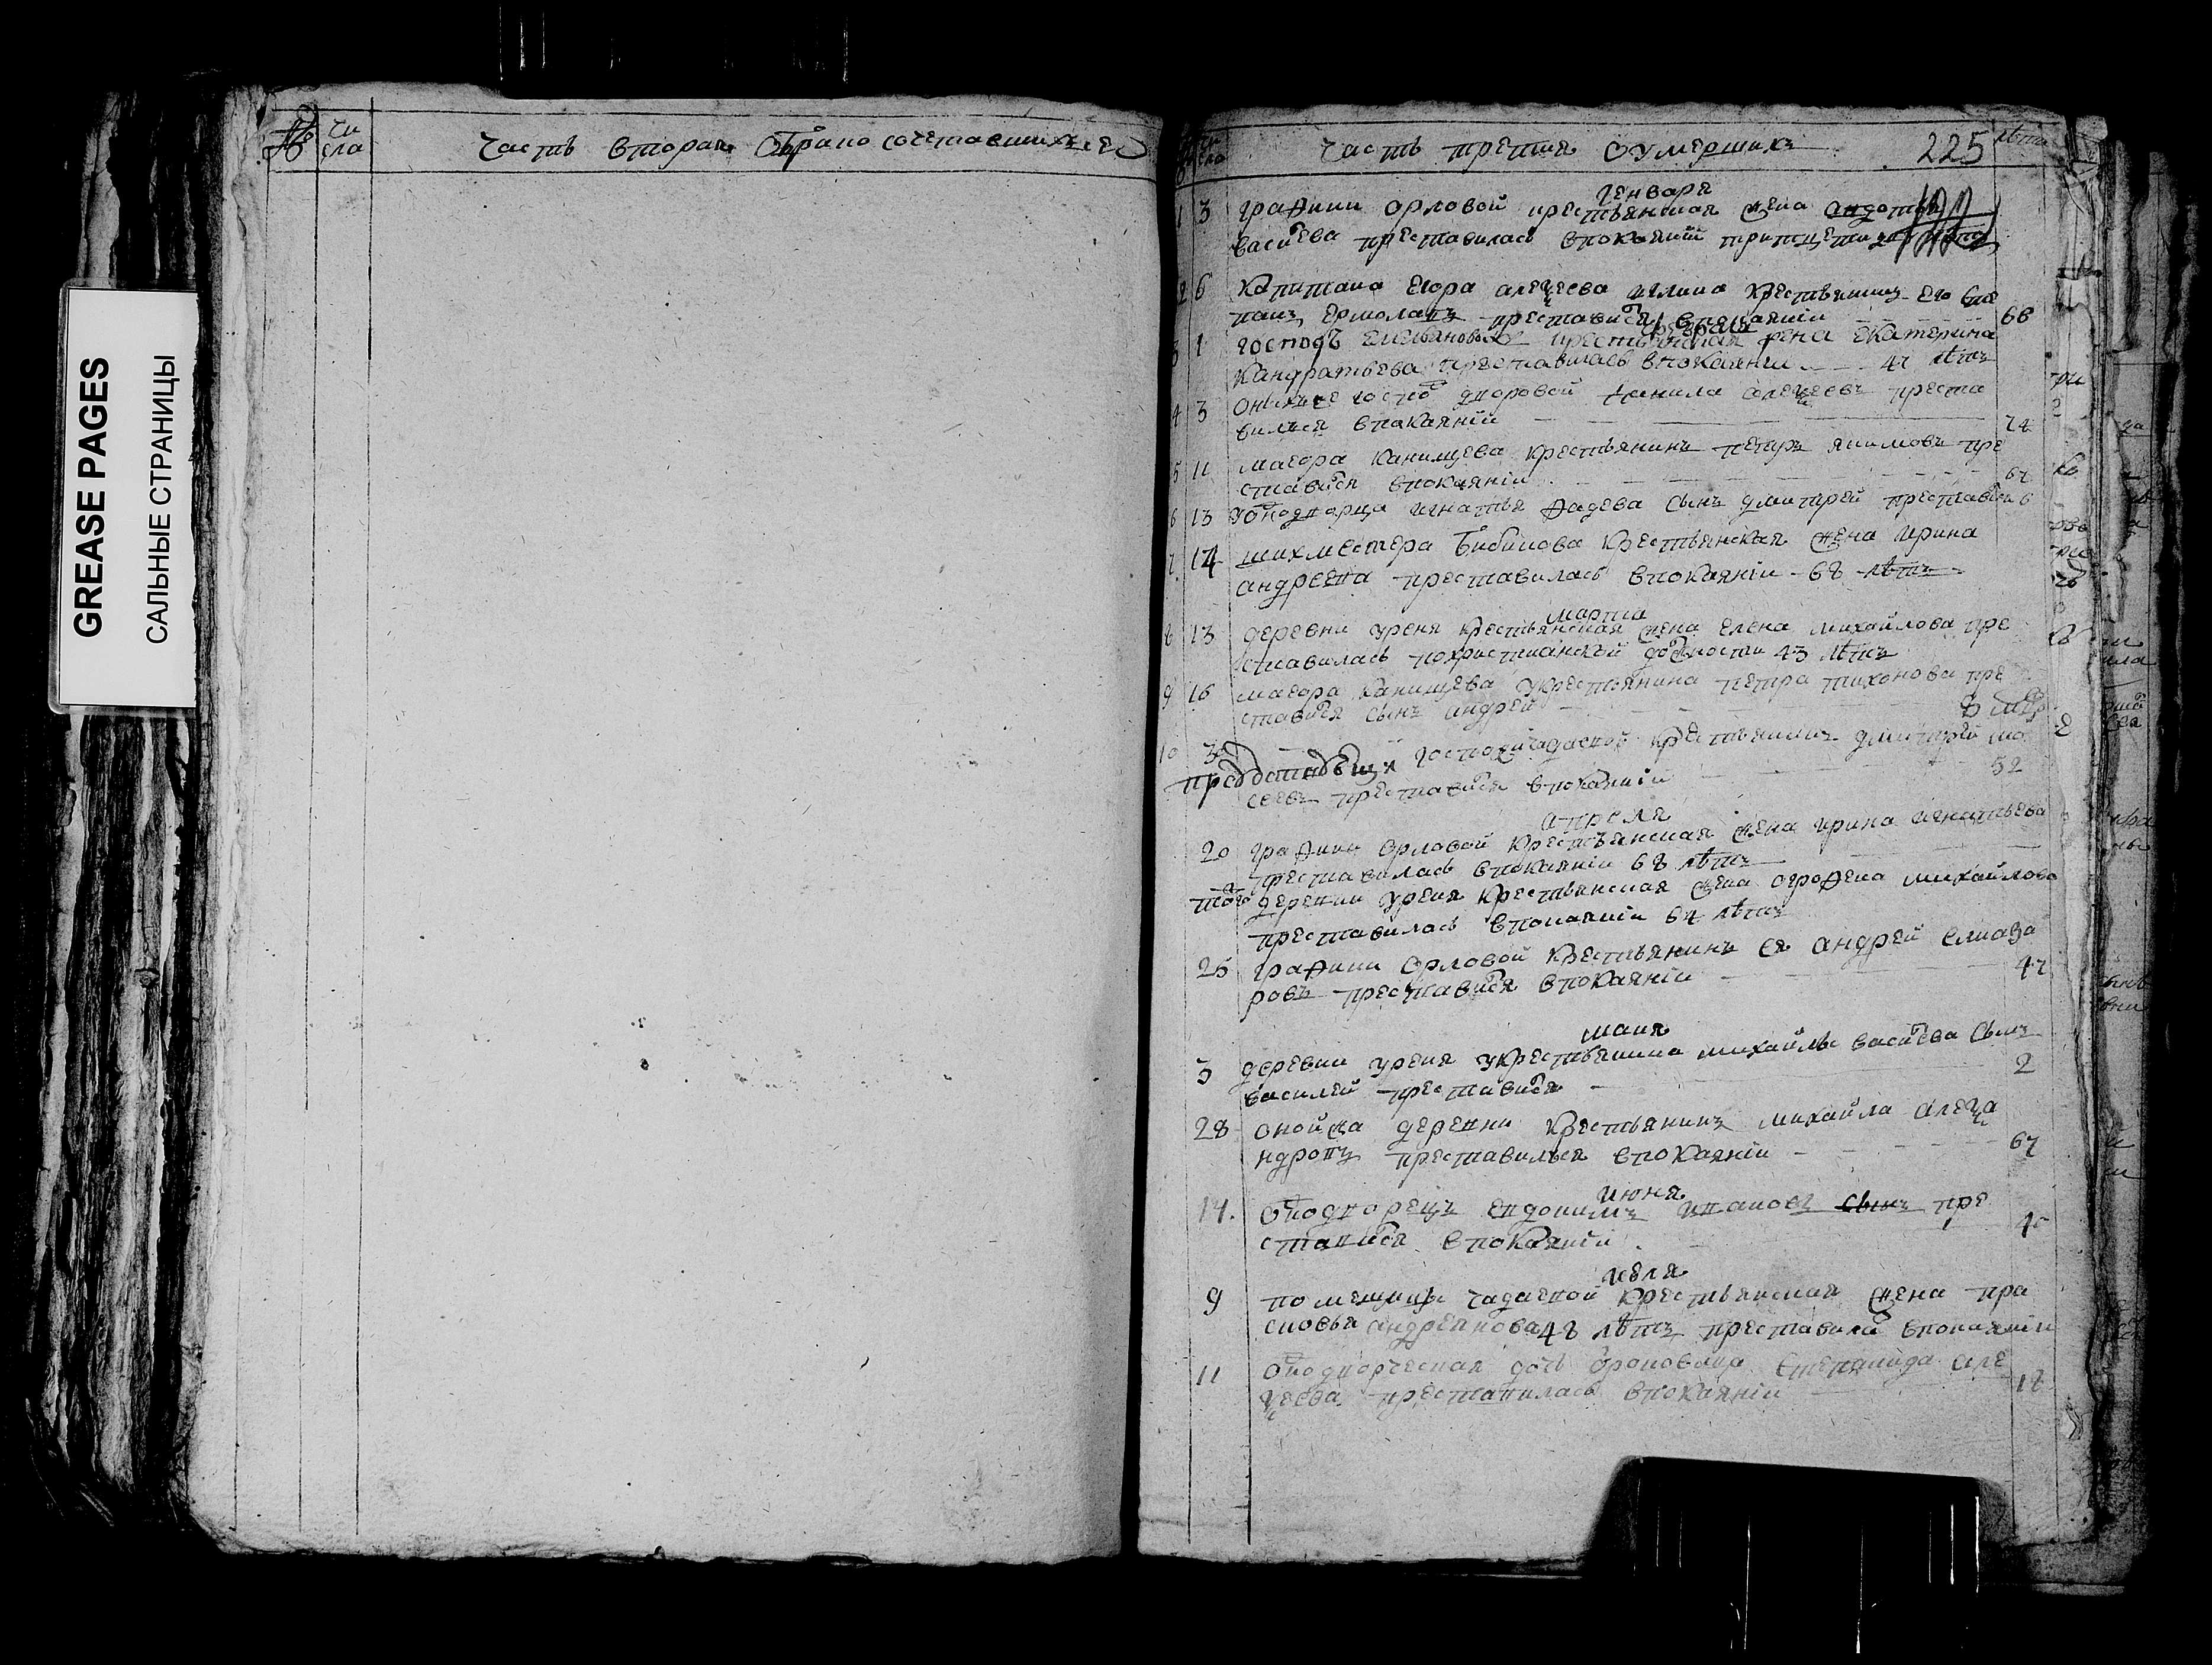 GREASE PAGES
САЛЬНЫЕ СТРАНИЦЫ
№ чи
сла
Часть вторая о брако сочетавшихся
чи
сла
Часть третия о умершихъ 225 лѣта
генваря
1 3 графини орловой крестьянская жена авдотья
васильева преставилась впокаяніи
2 6 капитана егора алеѯеева крестьянинъ
ермолаевъ преставися впокаяніи 68
февраля
3 1 господъ емельяновыхъ крестьянская жена екатерина
кандратьева преставилась впокаяніи 47 лѣтъ
4 3 данила алеѯеевъ преста
вился впокаяніи 74
5 11 маеора канищева крестьянинъ петръ якимовъ пре
ставися впокаяніи 67
6 13 однодворца игнатья фадева сынъ дмитрей преставися 6
7 14 шихместера бибикова крестьянская жена ирина
андреева преставилась впокаяніи 68 лѣтъ
марта
8 13 деревни уреня крестьянская жена елена михайлова пре
ставилась похристианской должности 43 лѣтъ
9 16 маеора канищева укрестьянина петра тихонова пре
ставися сынъ андрей
10 30 крестьянинъ дмитрей мо
сеевъ преставися впокаяніи 52
апреля
20 графини орловой крестьянская жена ирина игнатьева
преставилась впокаяніи 68 лѣтъ
того деревни уреня крестьянская жена огрофена михайлова
преставилась впокаяніи 64 лѣтъ
25 графини орловой крестьянинъ ея андрей елиаза
ровъ преставися впокаяніи 47
маия
5 деревни уреня укрестьянина михайлы васильева сынъ
василей преставися 2
28 онойжа деревни крестьянинъ михайла алеѯа
ндровъ преставился впокаяніи 67
июня
14. однодворецъ евдокимъ ивановъ сынъ пре
ставися впокаяніи 40
июля
9 помещицы чадаевой крестьянская жена пра
сковья андреянова 48 лѣтъ преставилась впокаяніи
11 однодворческая дочь степанида але
ѯеева преставилась впокаяніи 18